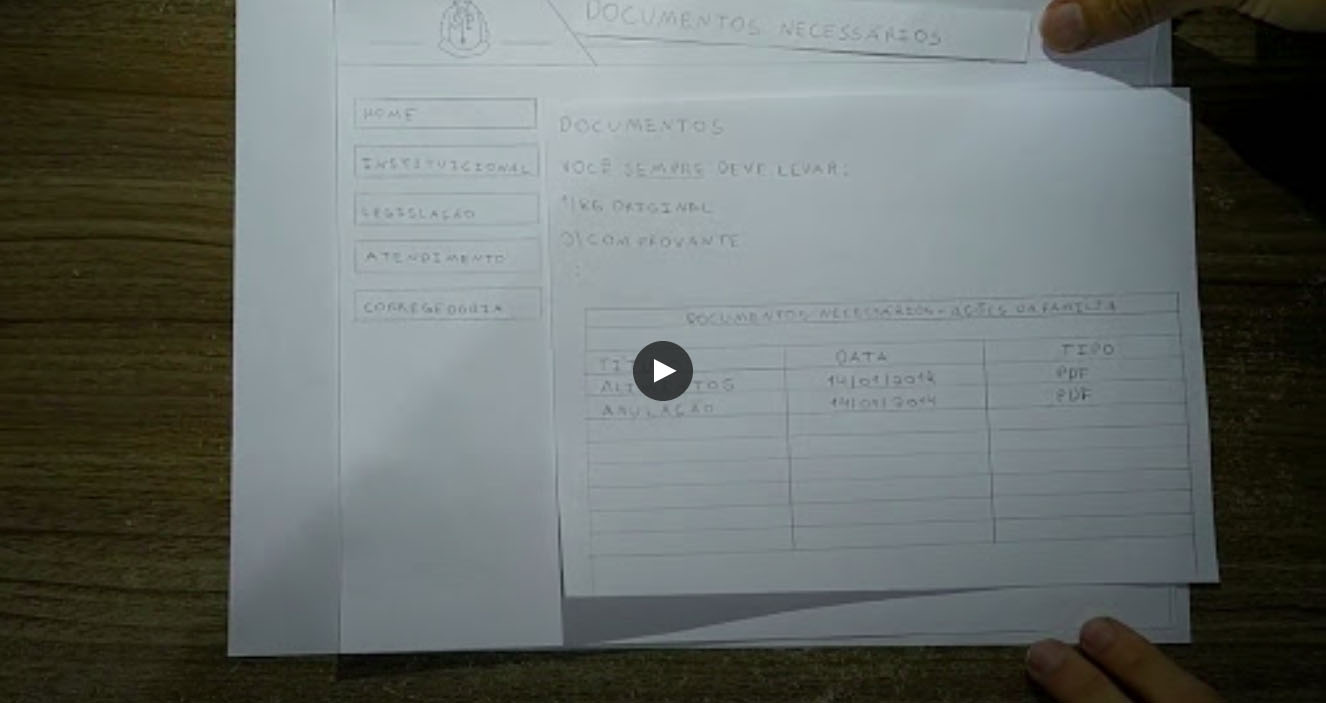 DOCUMENTOS NECESSÁRIOS
HOME
INSTITUICIONAL
LEGISLAÇÃO
ATENDIMENTO
CORREGEDORIA
DOCUMENTOS
VOCÊ SEMPRE DEVE LEVAR:
1) RG ORIGINAL
2) COMPROVANTE
:
DOCUMENTOS NECESSÁRIOS - AÇÕES DA FAMILIA
DATA TIPO
14/01/2014 PDF
ANULAÇÃO 14/01/2014 PDF